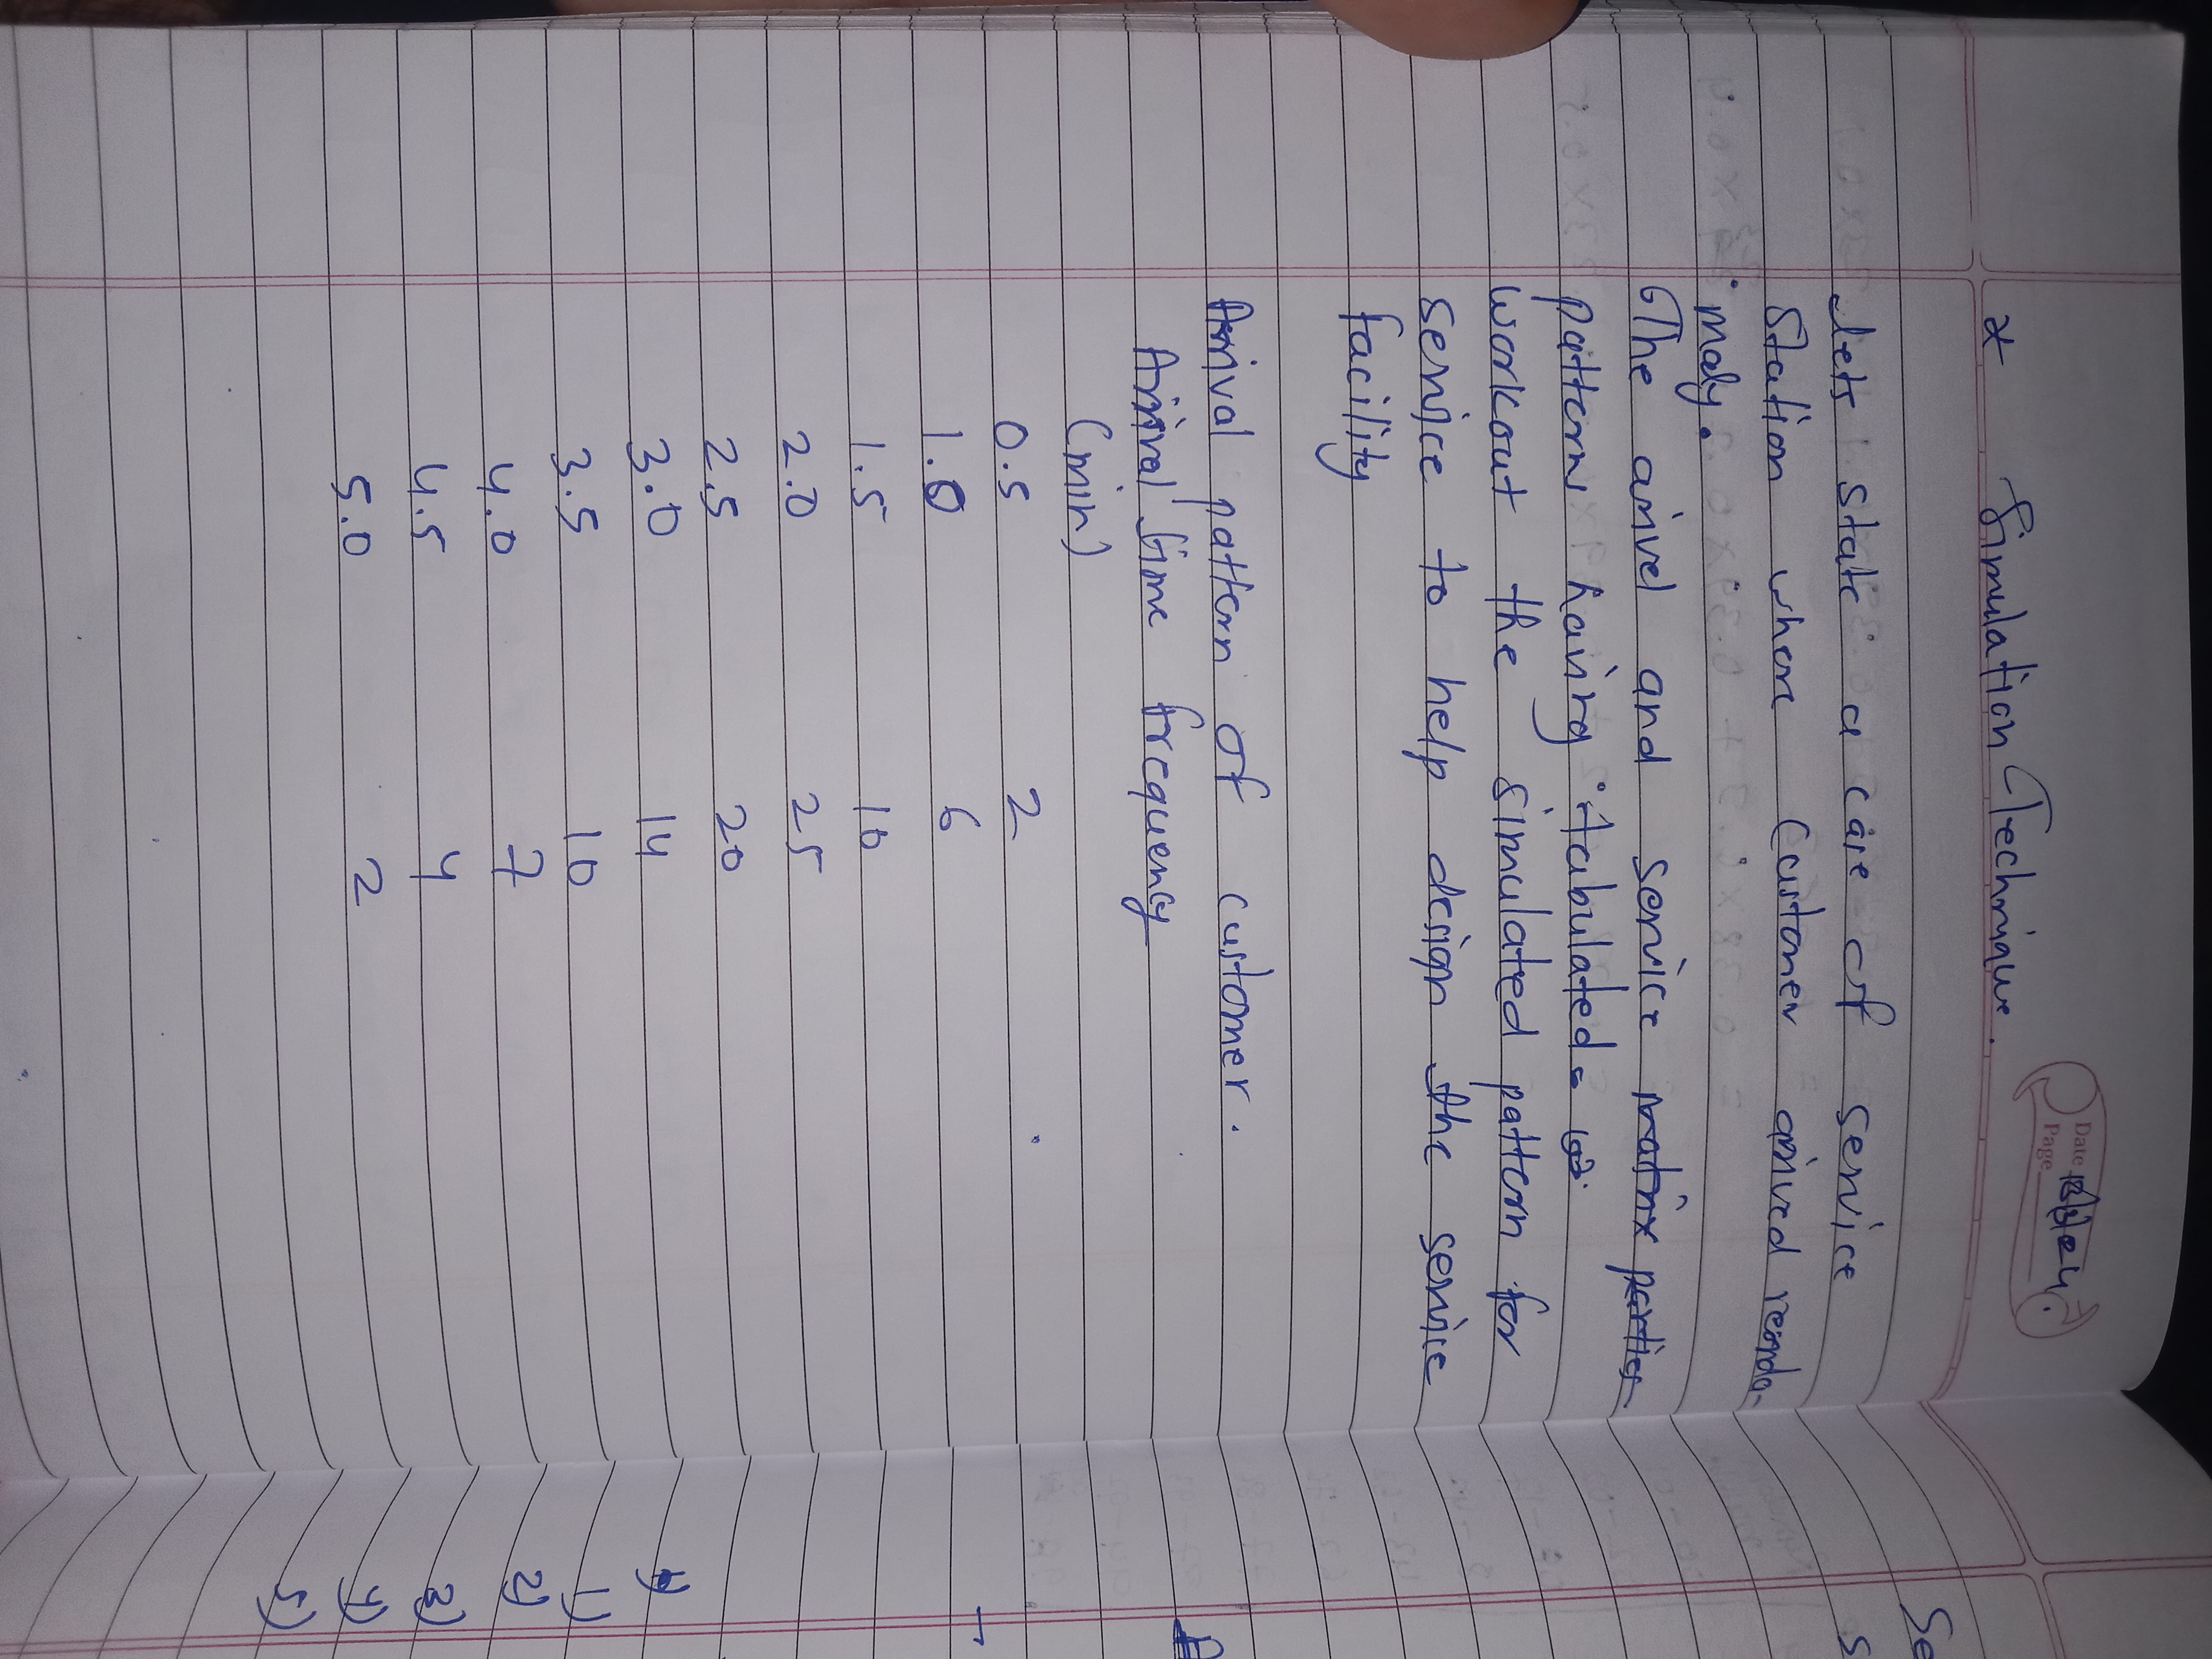 Date
Page
* Simulation Technique.
Lets state a case of service
station where customer arived rando-
mly.
The arivel and service matrix patter
pattern having tabulated
workout the simulated pattern for
service to help design the service
facility
Arrival pattern of customer.
Arrival time frequency
(min)
0.5 2
1.0 6
1.5 10
2.0 25
2.5 20
3.0 14
3.5 10
4.0 7
4.5 4
5.0 2
Se
S
1)
2)
3)
4)
5)